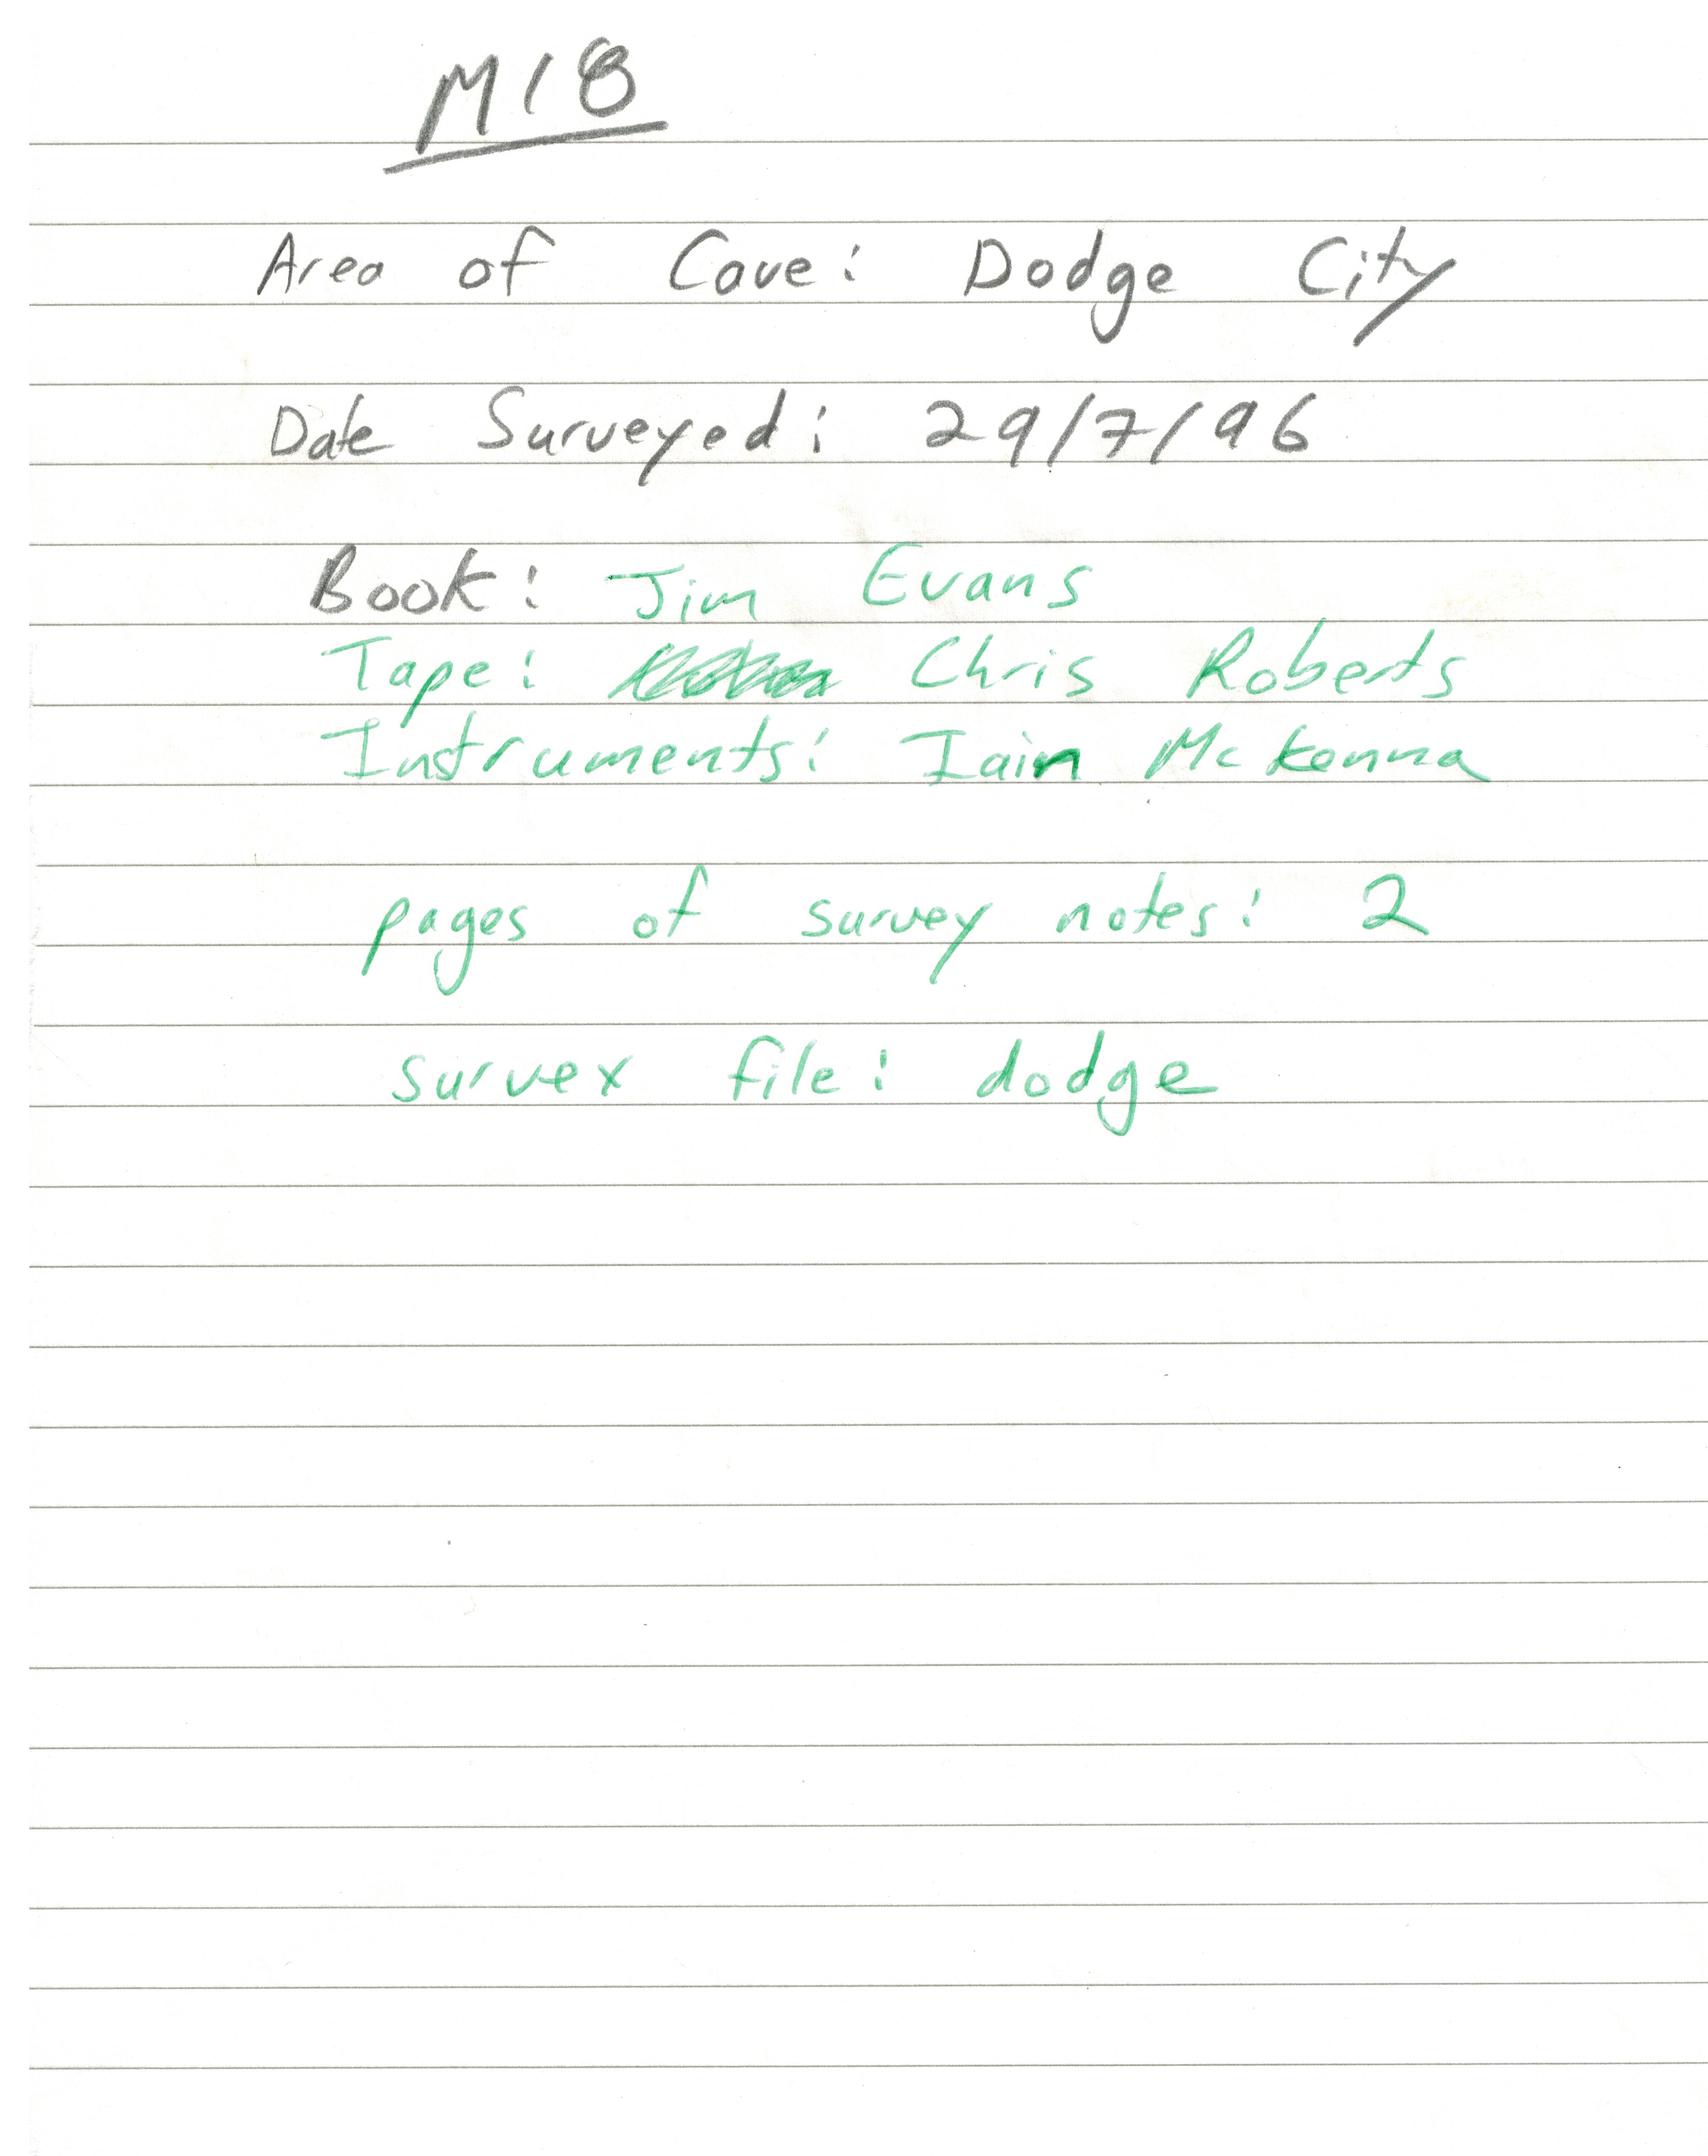 M18
Area of Cave: Dodge City
Date Surveyed: 29/7/96
Book: Jim Evans
Tape: Chris Roberts
Instruments: Iain McKenna
pages of survey notes: 2
survex file: dodge